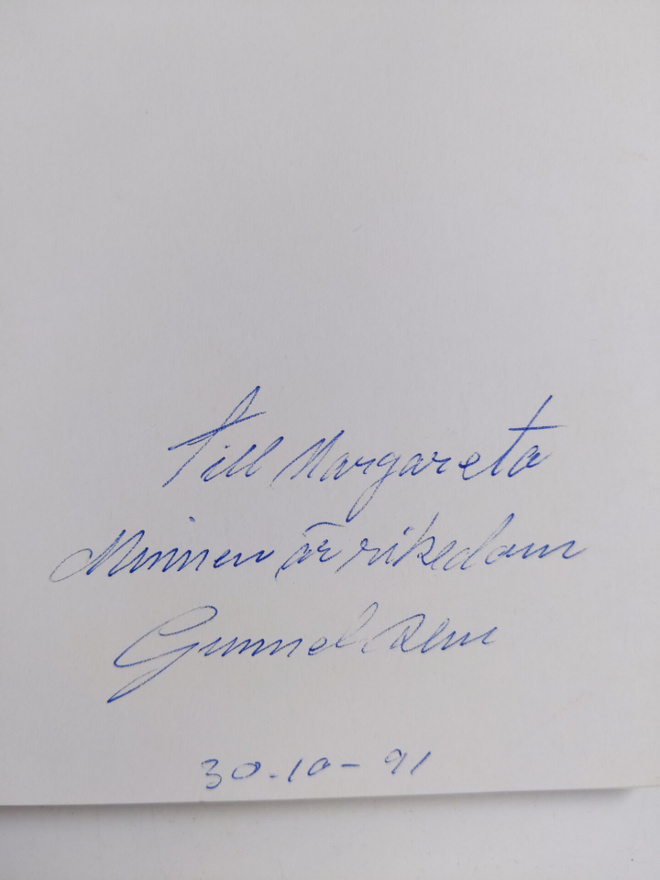 Till Margareta
Minnen är rikedom
Gunnel Alm
30-10-91